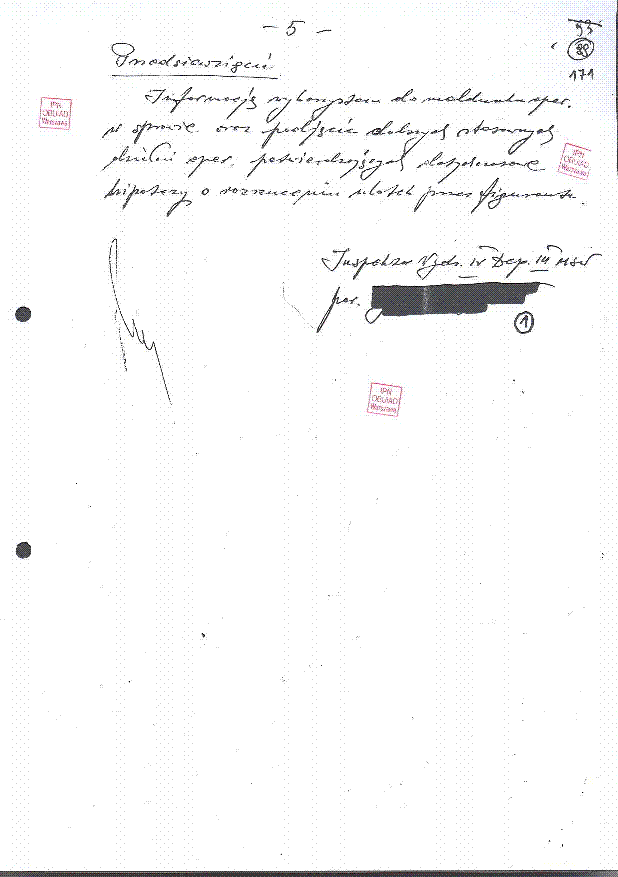 - 5 -
93
88
171
Przedsięwzięcia
Informację wykorzystam do meldunku oper.
w sprawie oraz podjęcia dalszych stosownych
działań oper. potwierdzających dotychczasowe
hipotezy o rozrzuceniu ulotek przez figuranta.
IPN
OBUiAD
Warszawa
IPN
OBUiAD
Warszawa
Inspektor Wydz. IV Dep. III MSW
por.
1
IPN
OBUiAD
Warszawa